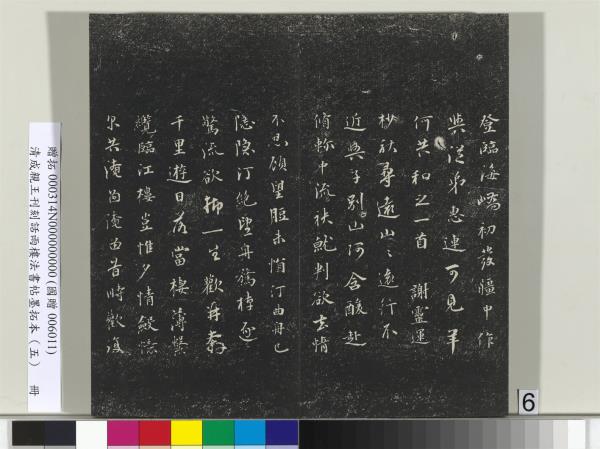 登臨海嶠初發疆中作
與從弟惠連可見羊
何共和之一首 謝靈運
杪秋尋遠山〻遠行不
近與子別山阿含酸赴
脩軫中流袂就判欲去情
不忍顧望脰未悁汀曲舟已
隱隱汀絕望舟騖棹逐
驚流欲抑一生歡并奔
千里遊日落當棲薄繫
纜臨江樓豈惟夕情斂憶
尔共淹留淹留昔時歡復
贈拓 000314N000000000 (國贈 006011)
清成親王刊刻話雨樓法書帖墨拓本(五) 冊
6